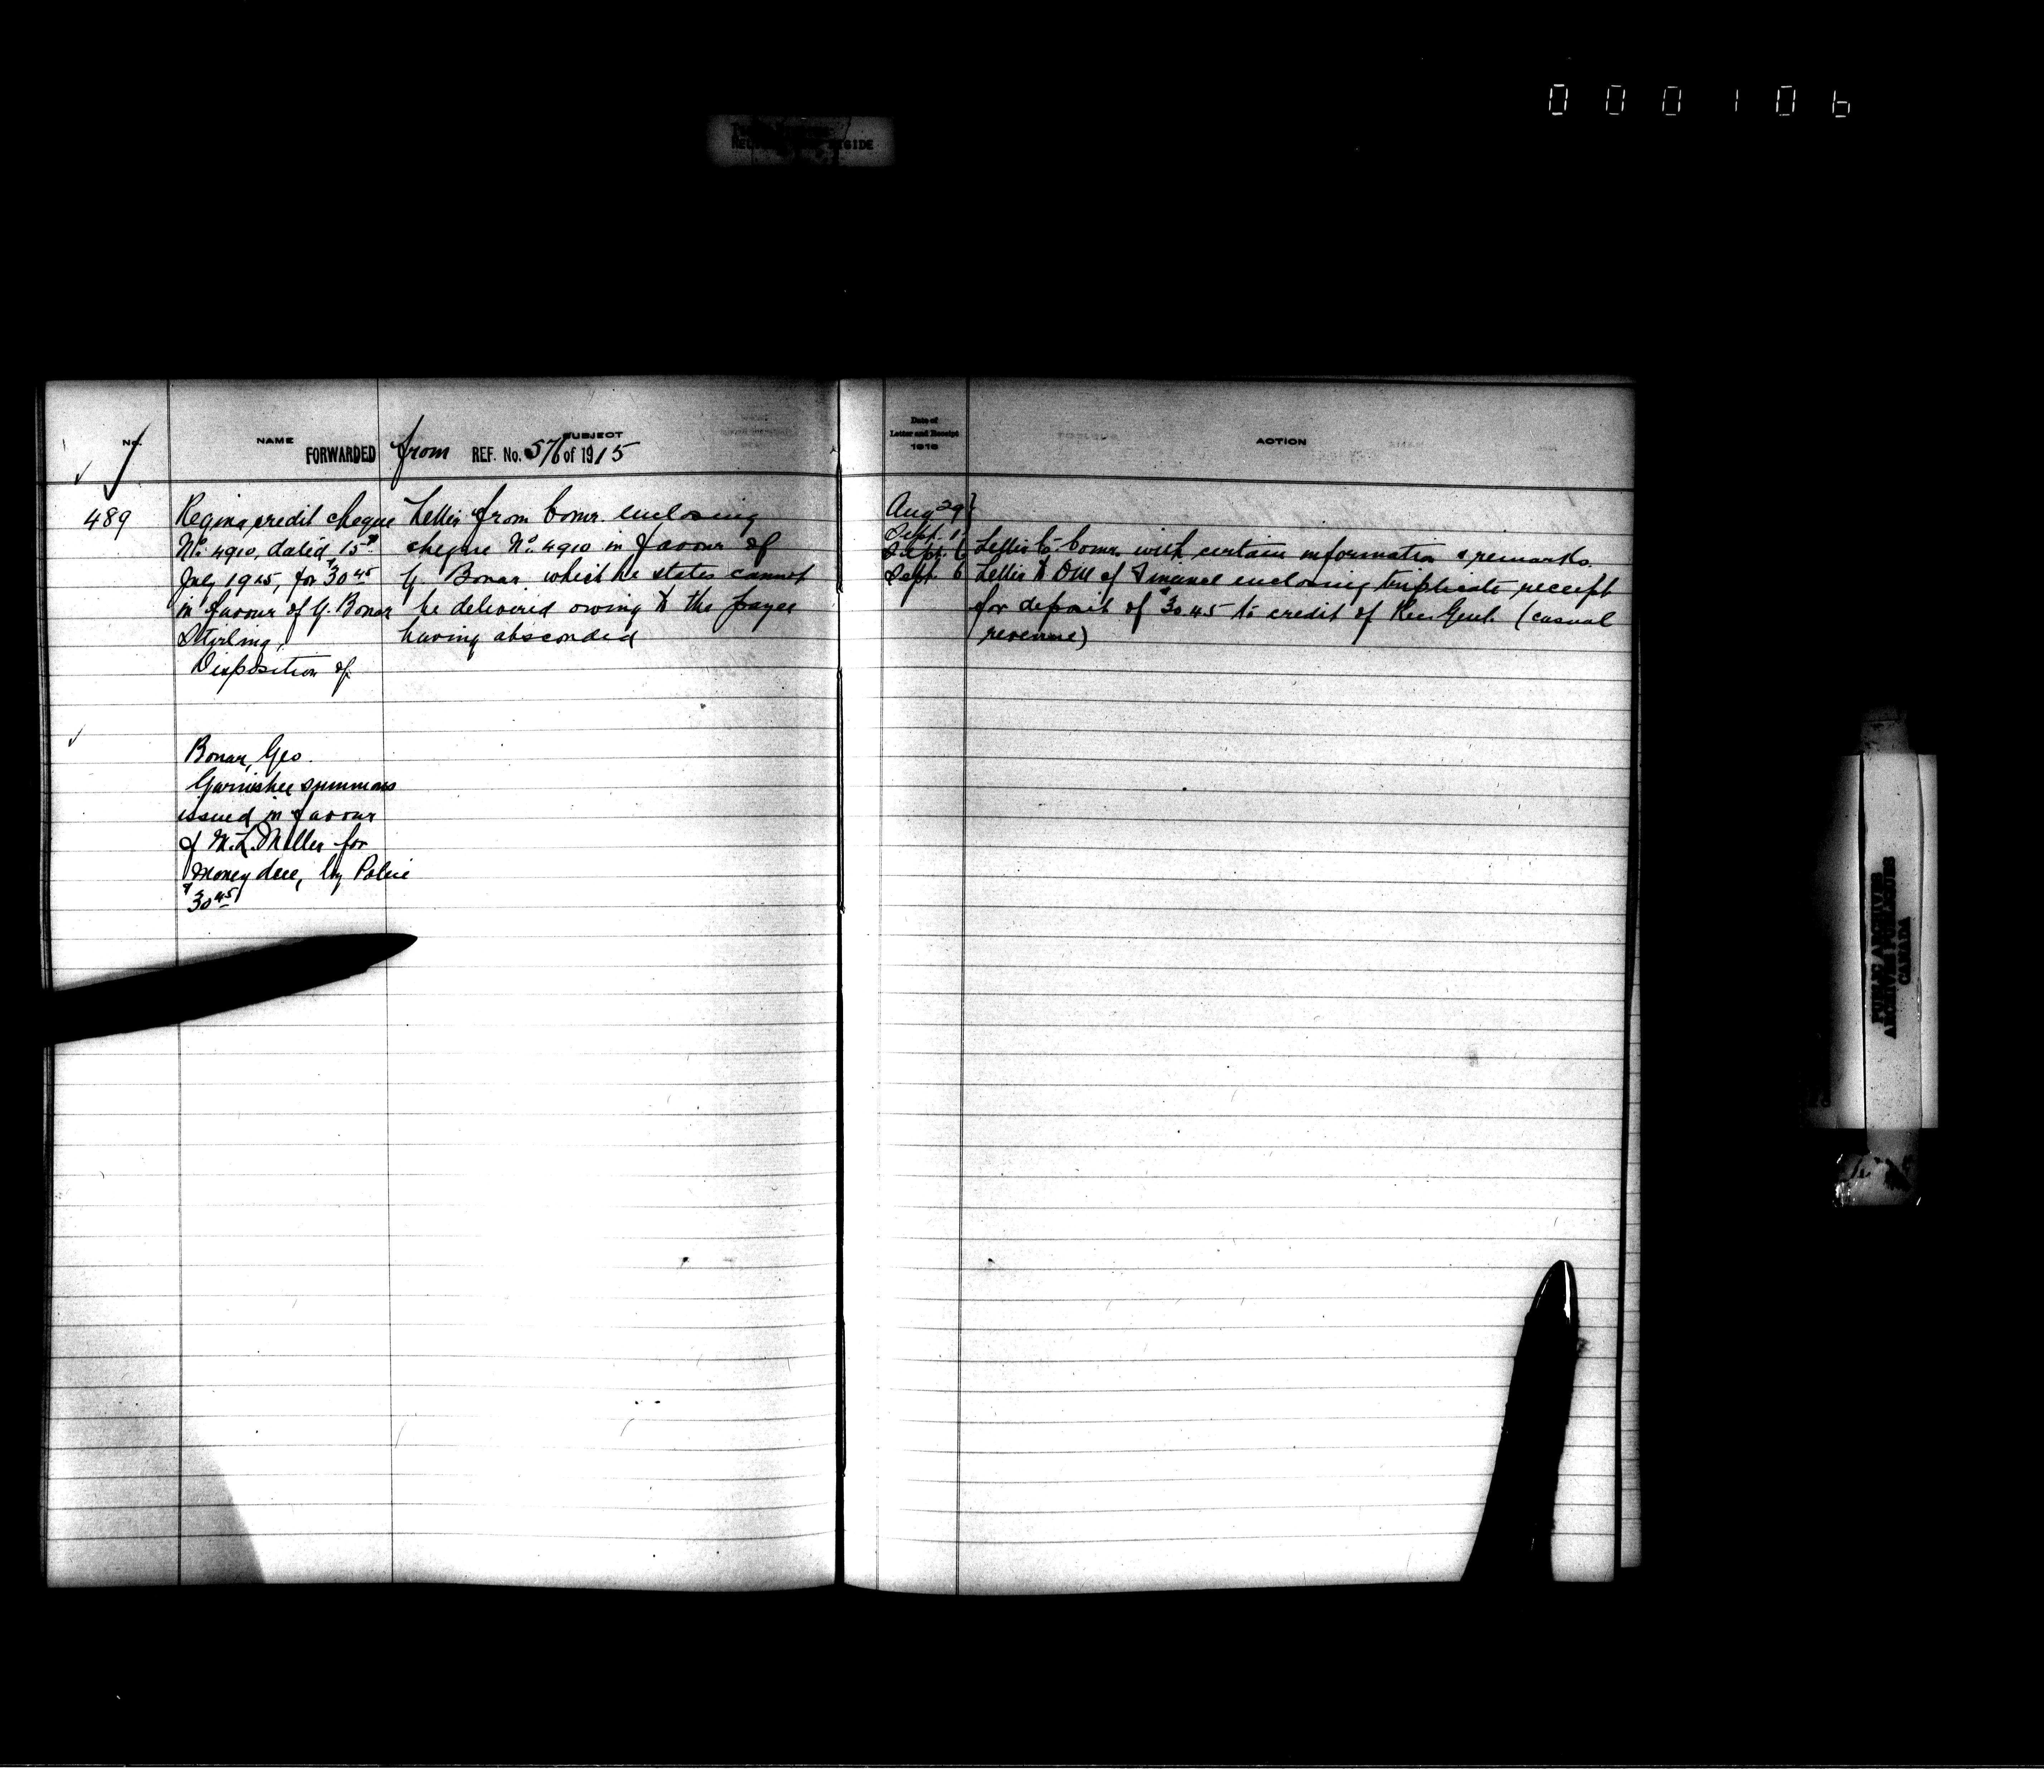 000106
No.
NAME
SUBJECT
FORWARDED from REF. No. 576 of 1915
489
Regina credit cheque
No. 4910, dated 15th
July 1915, for $30.45
in favour of G. Bonar
Stirling,
Disposition of
Letter from Comr. enclosing
cheque No. 4910 in favour of
G. Bonar which he states cannot
be delivered owing to the payee
having absconded
Bonar, Geo.
Garnishee summons
issued in favour
of M.L. Miller for
money due, by Police
$30.45
Date of
Letter and Receipt
1915
ACTION
Aug 29
Sept. 1
Sept. 6 Letter to Comr. with certain information & remarks.
Sept. 6 Letter to DM of Finance enclosing triplicate receipt
for deposit of $30.45 to credit of Rec. Genl. (casual
revenue)
PUBLIC ARCHIVES
ARCHIVES PUBLIQUES
CANADA